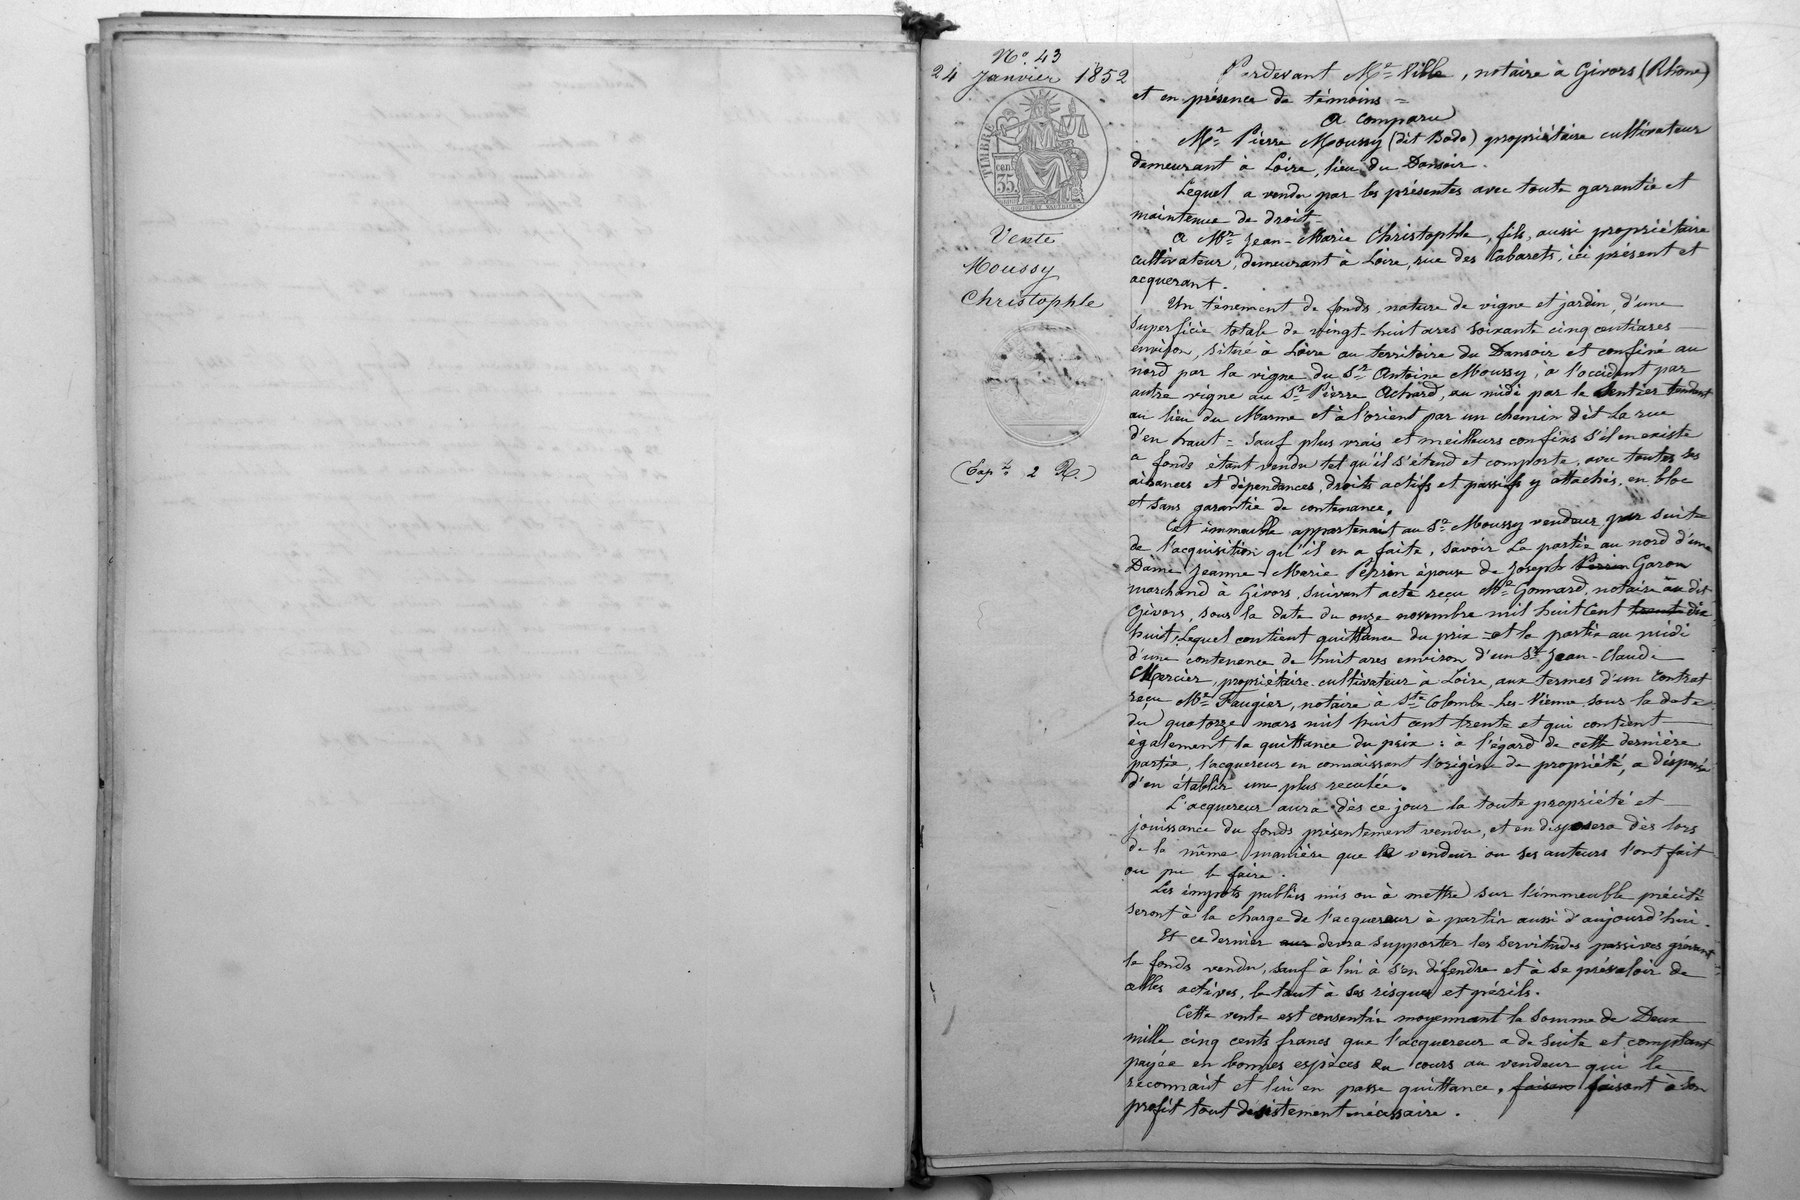 N.° 43
24 Janvier 1852
TIMBRE
cen.
35.
Vente
Moussy
Christophle
(Exp.on 2 R.)
Pardevant Me Ville, notaire à Givors (Rhône)
et en présence de témoins =
a comparu
Mr. Pierre Moussy (dit Bodo) propriétaire cultivateur
demeurant à Loire, lieu du Dansoir.
Lequel a vendu par les présentes avec toute garantie et
maintenue de droit
a Mr. Jean-Marie Christophle, fils, aussi propriétaire
cultivateur, demeurant à Loire, rue des Cabarets, ici présent et
acquerant.
Un tènement de fonds, nature de vigne et jardin, d'une
superficie totale de vingt-huit ares soixante cinq centiares
environ, situé à Loire au territoire du Dansoir et confiné au
nord par la vigne du Sr. Antoine Moussy, à l'occident par
autre vigne au Sr. Pierre Achard, au midi par le sentier tendant
au lieu du Marme et à l'orient par un chemin dit la rue
d'en haut = sauf plus vrais et meilleurs confins s'il en existe
a fonds étant vendu tel qu'il s'étend et comporte, avec toutes ses
aisances et dépendances, droits actifs et passifs y attachés, en bloc
et sans garantie de contenance.
Cet immeuble appartenait au Sr. Moussy vendeur par suite
de l'acquisition qu'il en a faite, savoir la partie au nord d'une
Dame Jeanne-Marie Perrin épouse de Joseph Perrin Garon
marchand à Givors, suivant acte reçu Me Gonnard, notaire au dit
Givors, sous la date du onze novembre mil huit cent trente dix
huit, lequel contient quittance du prix = et la partie au midi
d'une contenence de huit ares environ d'un Sr. Jean-Claude
Mercier, propriétaire-cultivateur à Loire, aux termes d'un contrat
reçu Me Faugier, notaire à Ste Colombe-les-Vienne sous la date
du quatorze mars mil huit cent trente et qui contient
également la quittance du prix : à l'égard de cette dernière
partie, l'acquereur en connaissant l'origine de propriété, a dispensé
d'en établir une plus reculée.
L'acquereur aura dès ce jour la toute propriété et
jouissance du fonds présentement vendu, et en disposera dès lors
de la même manière que le vendeur ou ses auteurs l'ont fait
ou pu le faire.
Les impots publics mis ou à mettre sur l'immeuble précité
seront à la charge de l'acquereur à partir aussi d'aujourd'hui.
Et ce dernier aur devra supporter les servitudes passives grévant
le fonds vendu, sauf à lui à s'en défendre et à se prévaloir de
celles actives, le tout à ses risques et périls.
Cette vente est consentie moyennant la somme de Deux
mille cinq cents francs que l'acquereur a de suite et comptant
payée en bonnes espèces de cours au vendeur qui le
reconnait et lui en passe quittance, faisan faisant à son
profit tout désistement nécessaire.